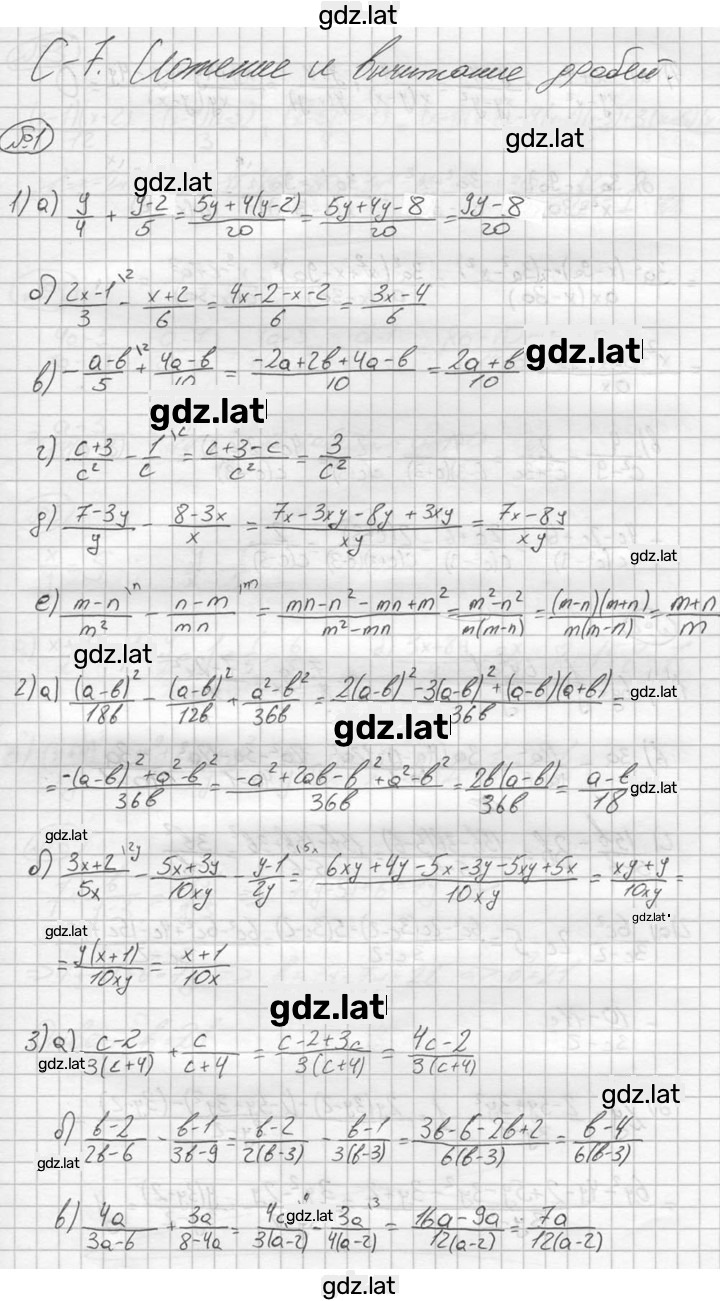 gdz.lat
С-7. Сложение и вычитание дробей.
№1
gdz.lat
gdz.lat
1) а) y/4 + (y-2)/5 = (5y+4(y-2))/20 = (5y+4y-8)/20 = (9y-8)/20
б) (2x-1)/3 \2 - (x+2)/6 = (4x-2-x-2)/6 = (3x-4)/6
в) -(a-b)/5 \2 + (4a-b)/10 = (-2a+2b+4a-b)/10 = (2a+b)/10 gdz.lat
gdz.lat
г) (c+3)/c² - 1/c \c = (c+3-c)/c² = 3/c²
д) (7-3y)/y - (8-3x)/x = (7x-3xy-8y+3xy)/xy = (7x-8y)/xy
gdz.lat
е) (m-n)/m² \n - (n-m)/mn \m = (mn-n²-mn+m²)/(m²-mn) = (m²-n²)/(m(m-n)) = ((m-n)(m+n))/(m(m-n)) = (m+n)/m
gdz.lat
2) а) (a-b)²/18b - (a-b)²/12b + (a²-b²)/36b = (2(a-b)²-3(a-b)²+(a-b)(a+b))/36b = gdz.lat
gdz.lat
= (-(a-b)²+a²-b²)/36b = (-a²+2ab-b²+a²-b²)/36b = 2b(a-b)/36b = (a-b)/18 gdz.lat
gdz.lat
б) (3x+2)/5x \2y - (5x+3y)/10xy - (y-1)/2y \5x = (6xy+4y-5x-3y-5xy+5x)/10xy = (xy+y)/10xy =
gdz.lat
gdz.lat
= y(x+1)/10xy = (x+1)/10x
gdz.lat
3) а) (c-2)/(3(c+4)) + c/(c+4) = (c-2+3c)/(3(c+4)) = (4c-2)/(3(c+4))
gdz.lat
gdz.lat
б) (b-2)/(2b-6) - (b-1)/(3b-9) = (b-2)/(2(b-3)) - (b-1)/(3(b-3)) = (3b-6-2b+2)/(6(b-3)) = (b-4)/(6(b-3))
gdz.lat
в) 4a/(3a-6) + 3a/(8-4a) = 4a/(3(a-2)) - 3a/(4(a-2)) \3 = (16a-9a)/(12(a-2)) = 7a/(12(a-2))
gdz.lat
gdz.lat